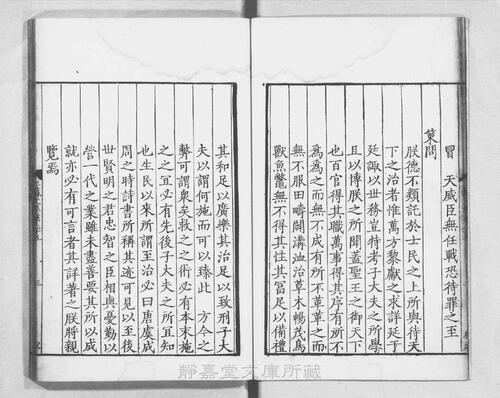 冒　天威臣無任戰恐待罪之至
策問
朕德不類託於士民之上所與待天
下之治者惟萬方黎獻之求詳延于
廷諏以世務豈特考子大夫之所學
且以博朕之所聞蓋聖王之御天下
也百官得其職萬事得其序有所不
為為之而無不成有所不革革之而
無不服田疇闢溝洫治草木暢茂鳥
獸魚鼈無不得其性其富足以備禮
其和足以廣樂其治足以致刑子大
夫以謂何施而可以臻此　方今之
弊可謂衆矣救之之術必有本末施
之之宜必有先後子大夫之所宜知
也生民以來所謂至治必曰唐虞成
周之時詩書所稱其迹可見以至後
世賢明之君忠智之臣相與憂勤以
營一代之業雖未盡善要其所以成
就亦必有可言者其詳著之朕將親
覽焉
静嘉堂文庫所蔵